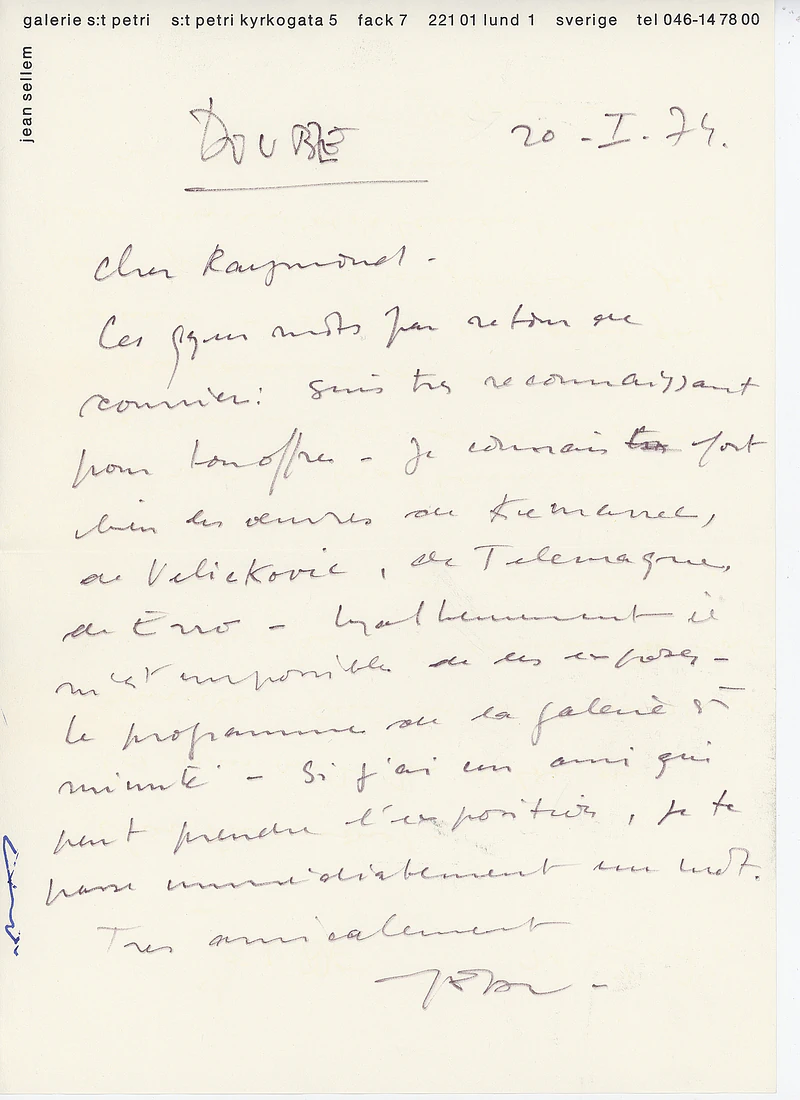 galerie s:t petri s:t petri kyrkogata 5 fack 7 221 01 lund 1 sverige tel 046-14 78 00
jean sellem
DOUBLE
20 - I. 74.
Cher Raymond -
Ces qques mots par retour de
courrier: suis tres reconnaissant
pour ton offre - Je connais fort
bien les œuvres de
de Velickovic, de Telemaque,
de Erro - Malheureusement il
m'est impossible de les exposer -
le programme de la galerie est
minuté - Si j'ai un ami qui
peut prendre l'exposition, je te
passe immédiatement un mot.
Tres amicalement
Jean -